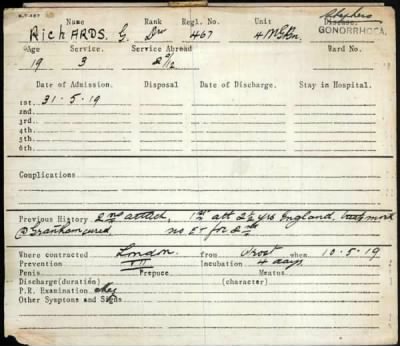 Name Rank Regl. No. Unit Disease.
RichARDS. G. Dvr 467 4 MGBn. GONORRHOEA.
Age Service. Service Abroad Ward No.
19 3 2 9/12
Date of Admission. Disposal Date of Discharge. Stay in Hospital.
1st 31-5-19
2nd
3rd
4th
5th
6th
Complications
Previous History 2nd attack, 1st att 2½ yrs England,
@ Grantham cured, no for 2
Where contracted London from Prost when 10-5-19
Prevention VII Incubation 4 days
Penis Prepuce Meatus
Discharge (duration) (character)
P.R. Examination
Other Symptoms and Signs